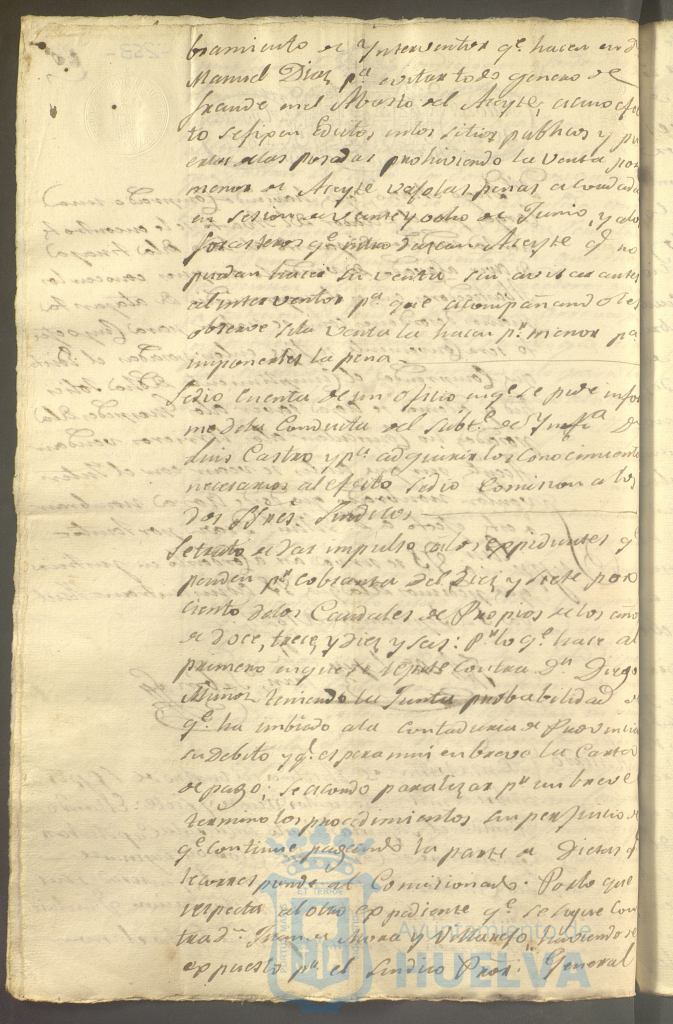 bramiento de Ynterventor qe. hacen en D.
Manuel Diaz pa. evitar todo genero de
fraude en el Abasto del Aceyte, a cuio efec
to se fixen Edictos en los sitios publicos y pu
ertas de las posadas prohiviendo la venta por
menor de Aceyte vajo las penas acordadas
en sesion de veinte y ocho de Junio, y a los
forasteros qe. introduzcan Aceyte qe. no
puedan hacer su venta sin avisar antes
al interventor pa. que acompañandoles
observe si la venta la hacen pr. menor pa.
imponerles la pena
Se dio cuenta de un oficio en qe. se pide infor
me de la Conducta del Subte. de Ynfa. Dn.
Luis Castro y pa. adquirir los conocimientos
necesarios al efecto se dio comision a los
dos SSres. Sindicos
Se trato de dar impulso a los expedientes qe.
penden pr. cobranza del Diez y siete por
ciento de los Caudales de Propios de los años
de doce, trece, y diez y seis: Pr. lo qe. hace al
primero en que se repite contra Dn. Diego
Muñoz teniendo la Junta probabilidad de
qe. ha imbiado a la contaduria de Provincia
su Debito y qe. espera mui en breve la Carta
de pago; se acordo paralizar pr. un breve
termino los procedimientos sin perjuicio de
qe. continue pagando la parte de Dietas qe.
le corresponde al Comisionado. Por lo que
respecta al otro expediente qe. se sigue con
tra Dn. Mora y Villarejo, haviendose
expuesto pr. el Sindico Pror. General
Ayuntamiento de
HUELVA